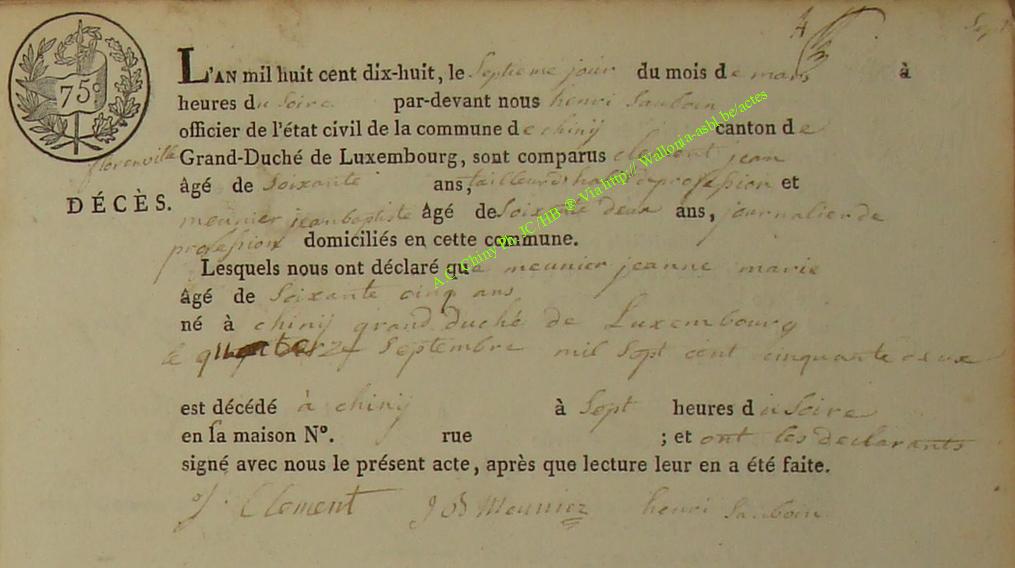 75c
4
Sept
L'AN mil huit cent dix-huit, le Septieme jour du mois de mars à
heures du Soire par-devant nous henri Sauboin
officier de l'état civil de la commune de chinij canton de
florenville Grand-Duché de Luxembourg, sont comparus clement jean
âgé de Soixante ans, tailleur profession et
DÉCÈS.
meunier jean baptiste âgé de Soixante deux ans, journalier de
profession domiciliés en cette commune.
Lesquels nous ont déclaré que meunier jeanne marie
âgé de Soixante cinq ans
né à chinij grand duché de Luxembourg
le 24 Septembre mil Sept cent cinquante deux
est décédé à chinij à Sept heures du Soire
en sa maison N°. rue ; et ont les declarants
signé avec nous le présent acte, après que lecture leur en a été faite.
J. Clement JB Meunier henri Sauboin
A.C. Chiny Ph. JC /HB ® Via http:// Wallonia-asbl.be/actes